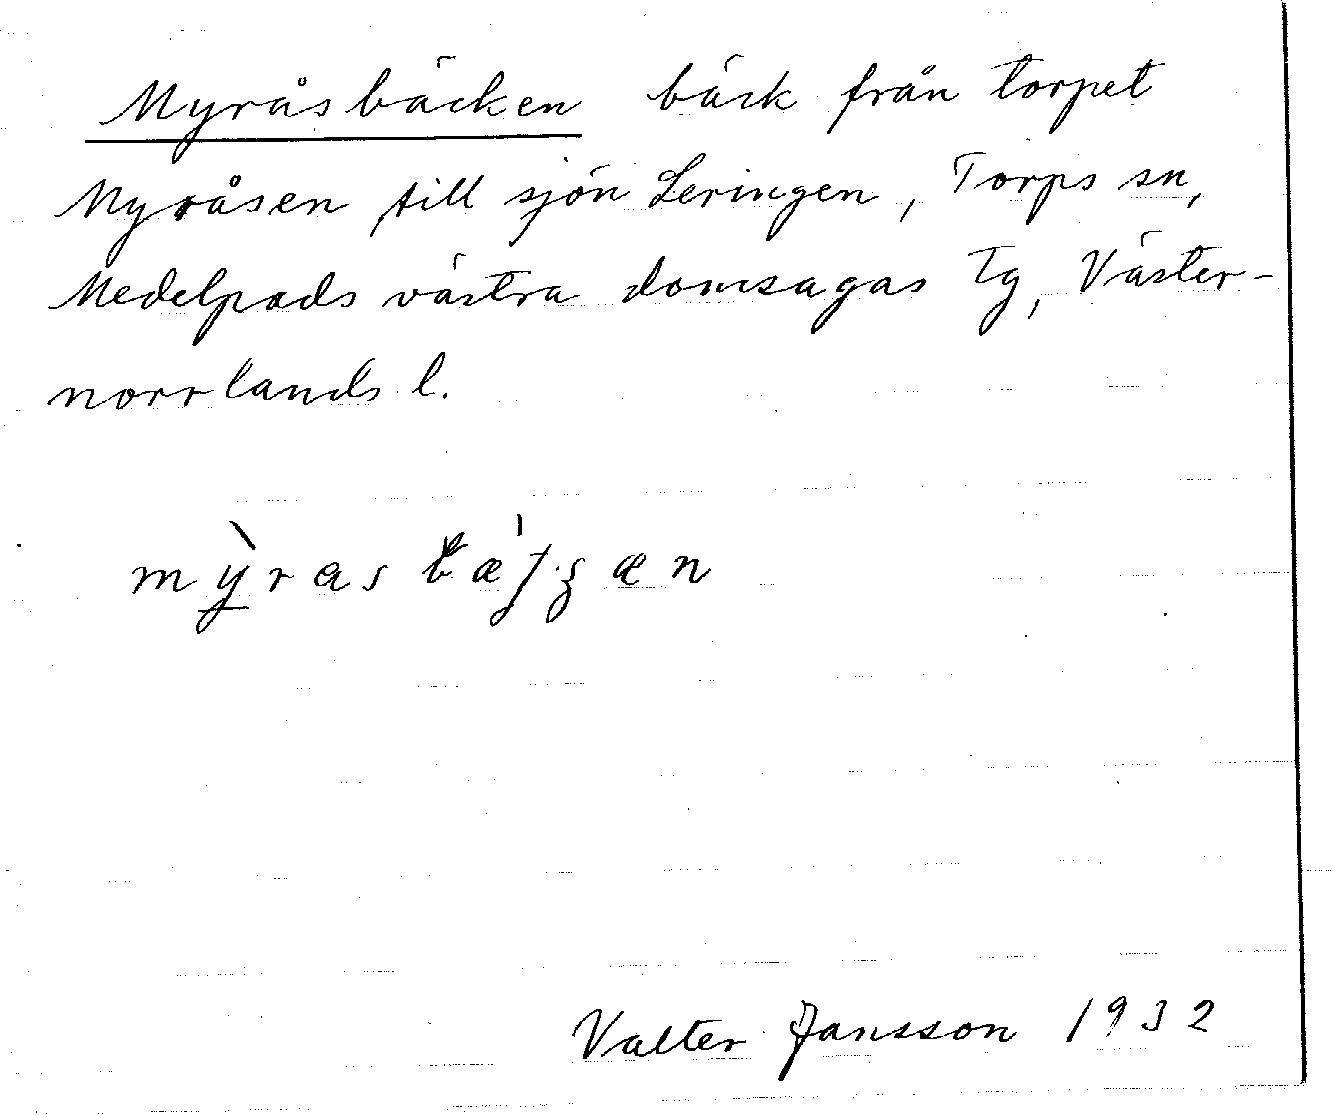 Myråsbäcken bäck från torpet
Myråsen till sjön Leringen, Torps sn,
Medelpads västra domsagas tg, Väster-
norrlands l.
Valter Jansson 1932